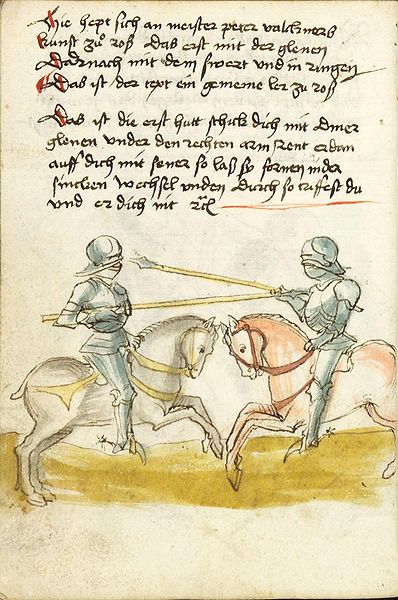 Hie hept sich an meister peter valckners
kunst zuͦ roß Das erst mit der glenen
Darnach mit dem swert vnd in ringen
Das ist der text ein gemeine ler zu roß
Das ist die erst hutt schick dich mit diner
glenen vnder den rechten arm Rent er dan
auff dich mit seiner so laß sy fornen inder
sincken wechsel vnden durch so triffest du
vnd er dich mit